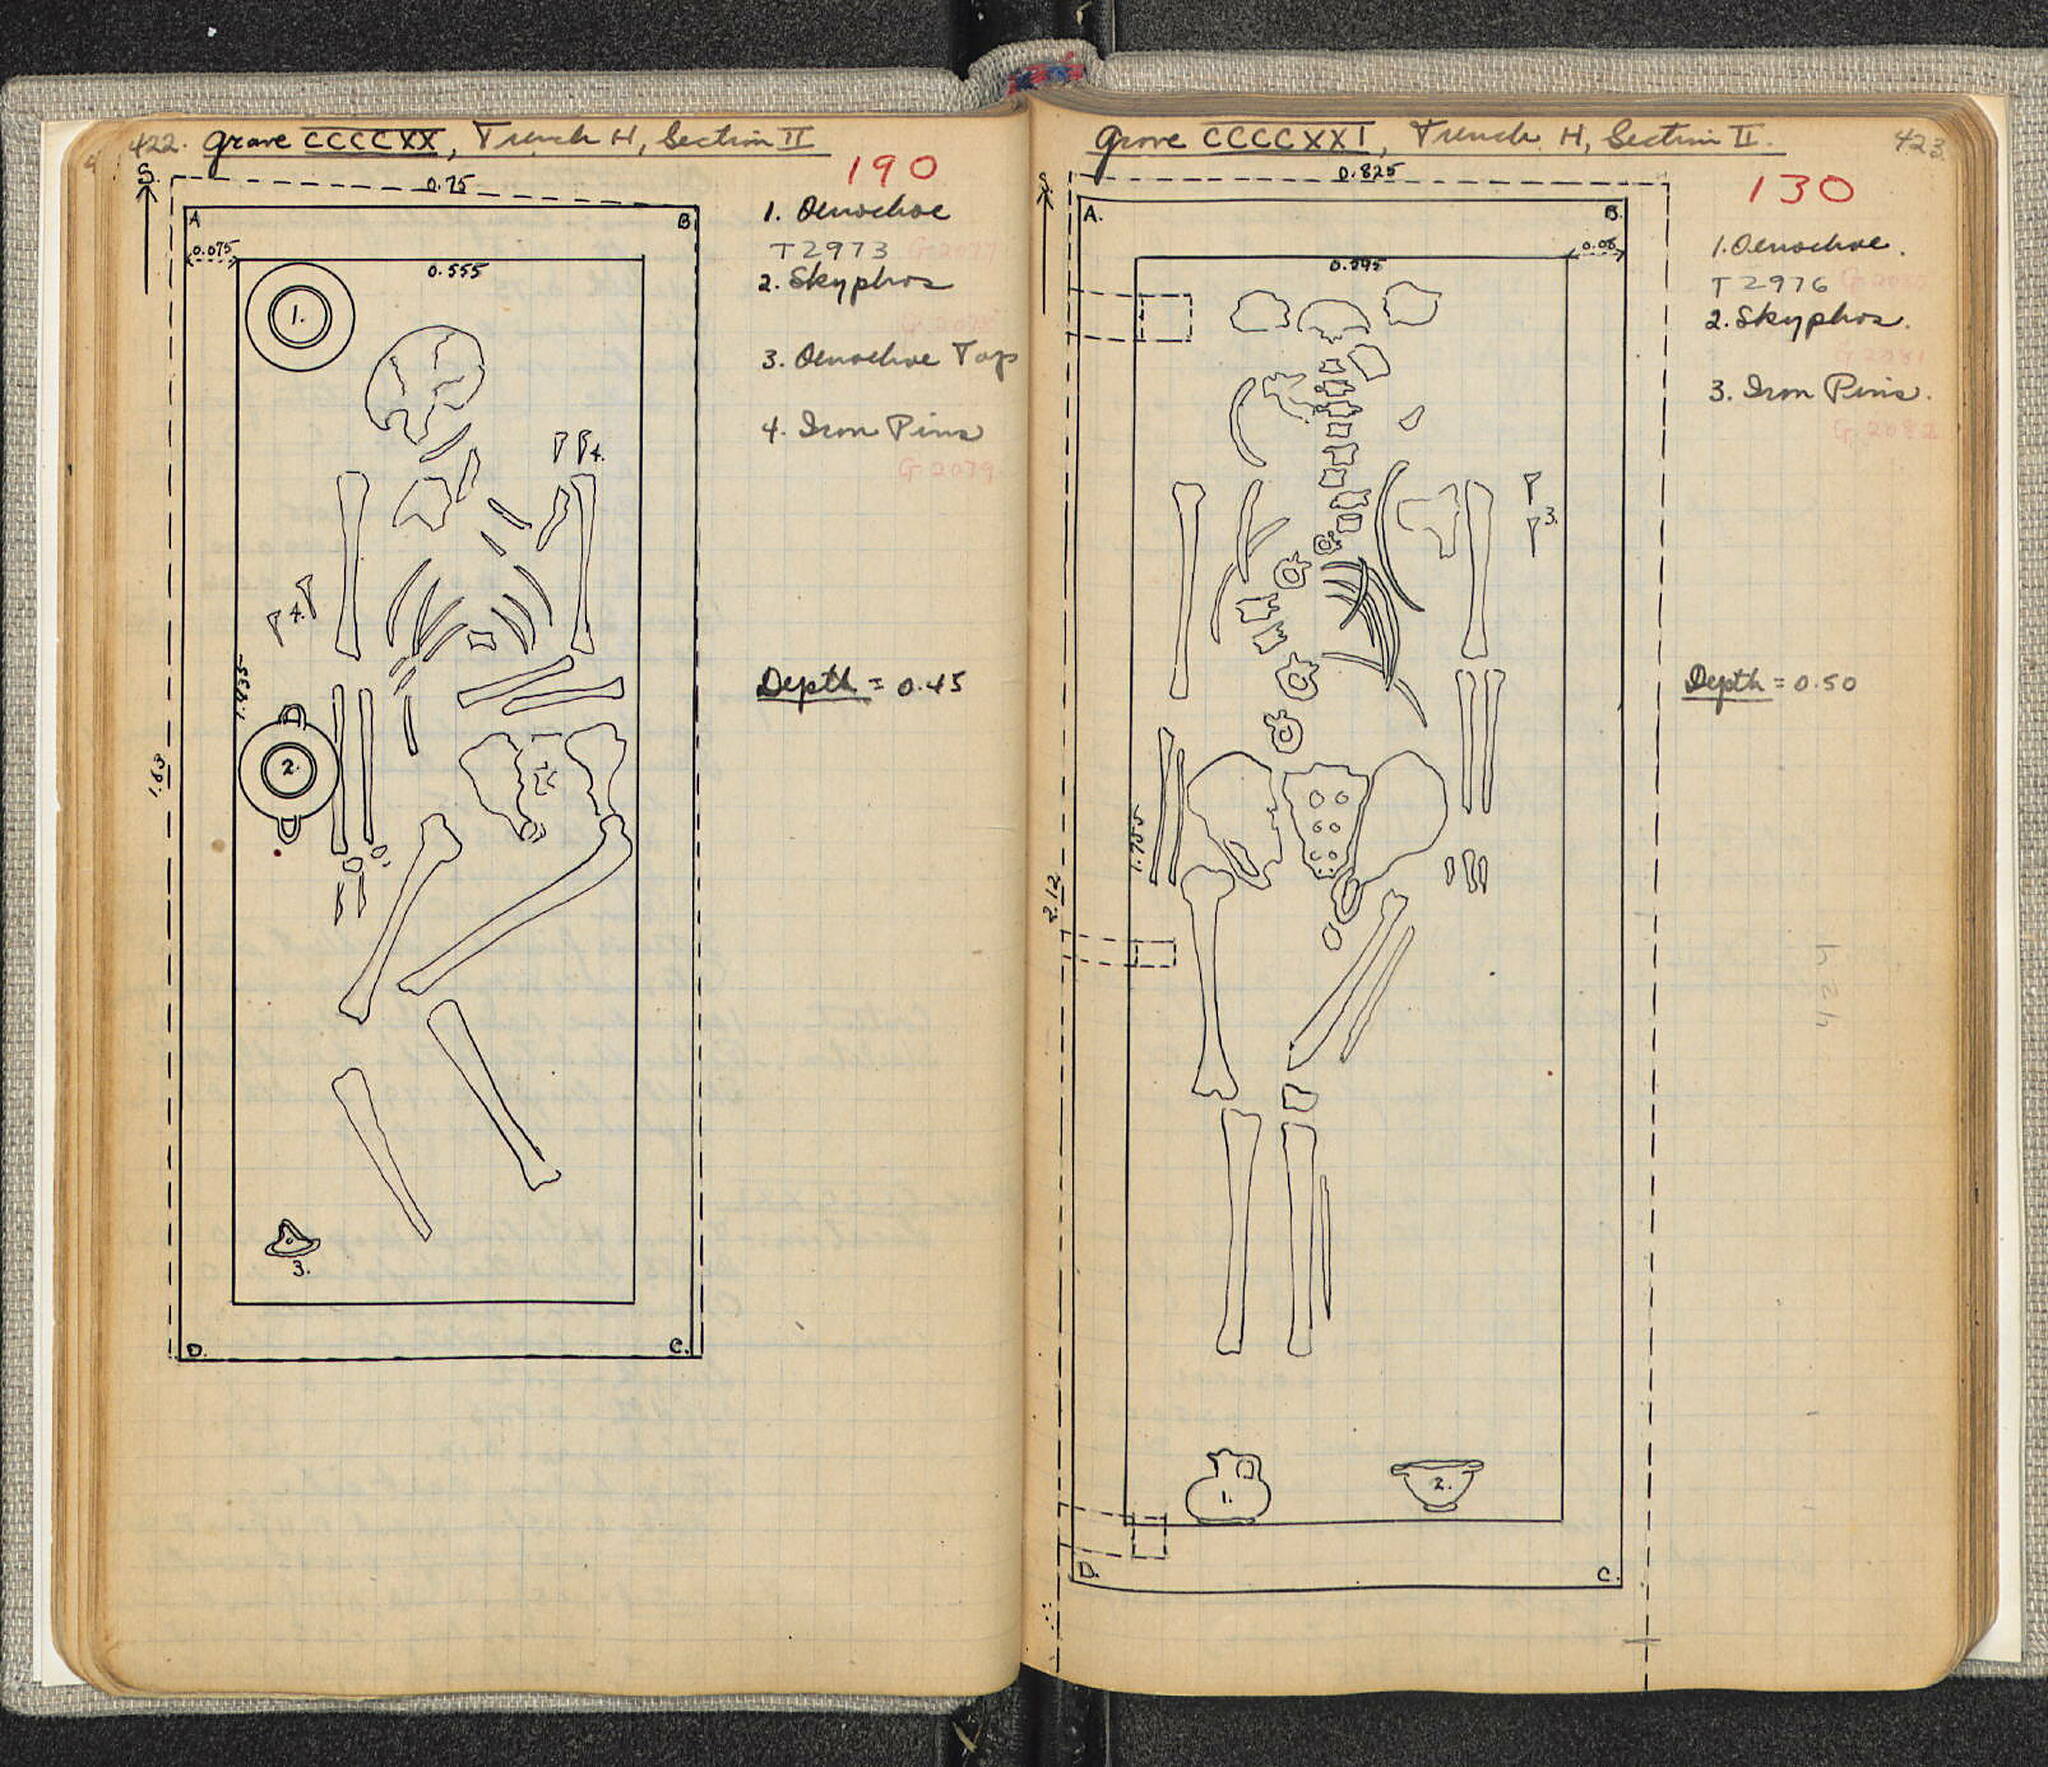 422. Grave CCCCXX, Trench H, Section II
S.
0.75
190
A
B
0.075
0.555
1.
1. Oenochoe
T2973 G-2077
2. Skyphos
G 2078
3. Oenochoe Top
4. Iron Pins
G 2079
4.
4.
1.435
1.63
2.
Depth = 0.45
3.
D.
C.
Grave CCCCXXI, Trench H, Section II.
423.
S.
0.825
130
A.
B.
0.06
0.595
1. Oenochoe.
T2976 G 2080
2. Skyphos.
G 2081
3. Iron Pins.
G 2082
3.
Depth = 0.50
1.755
2.12
1.
2.
D.
C.